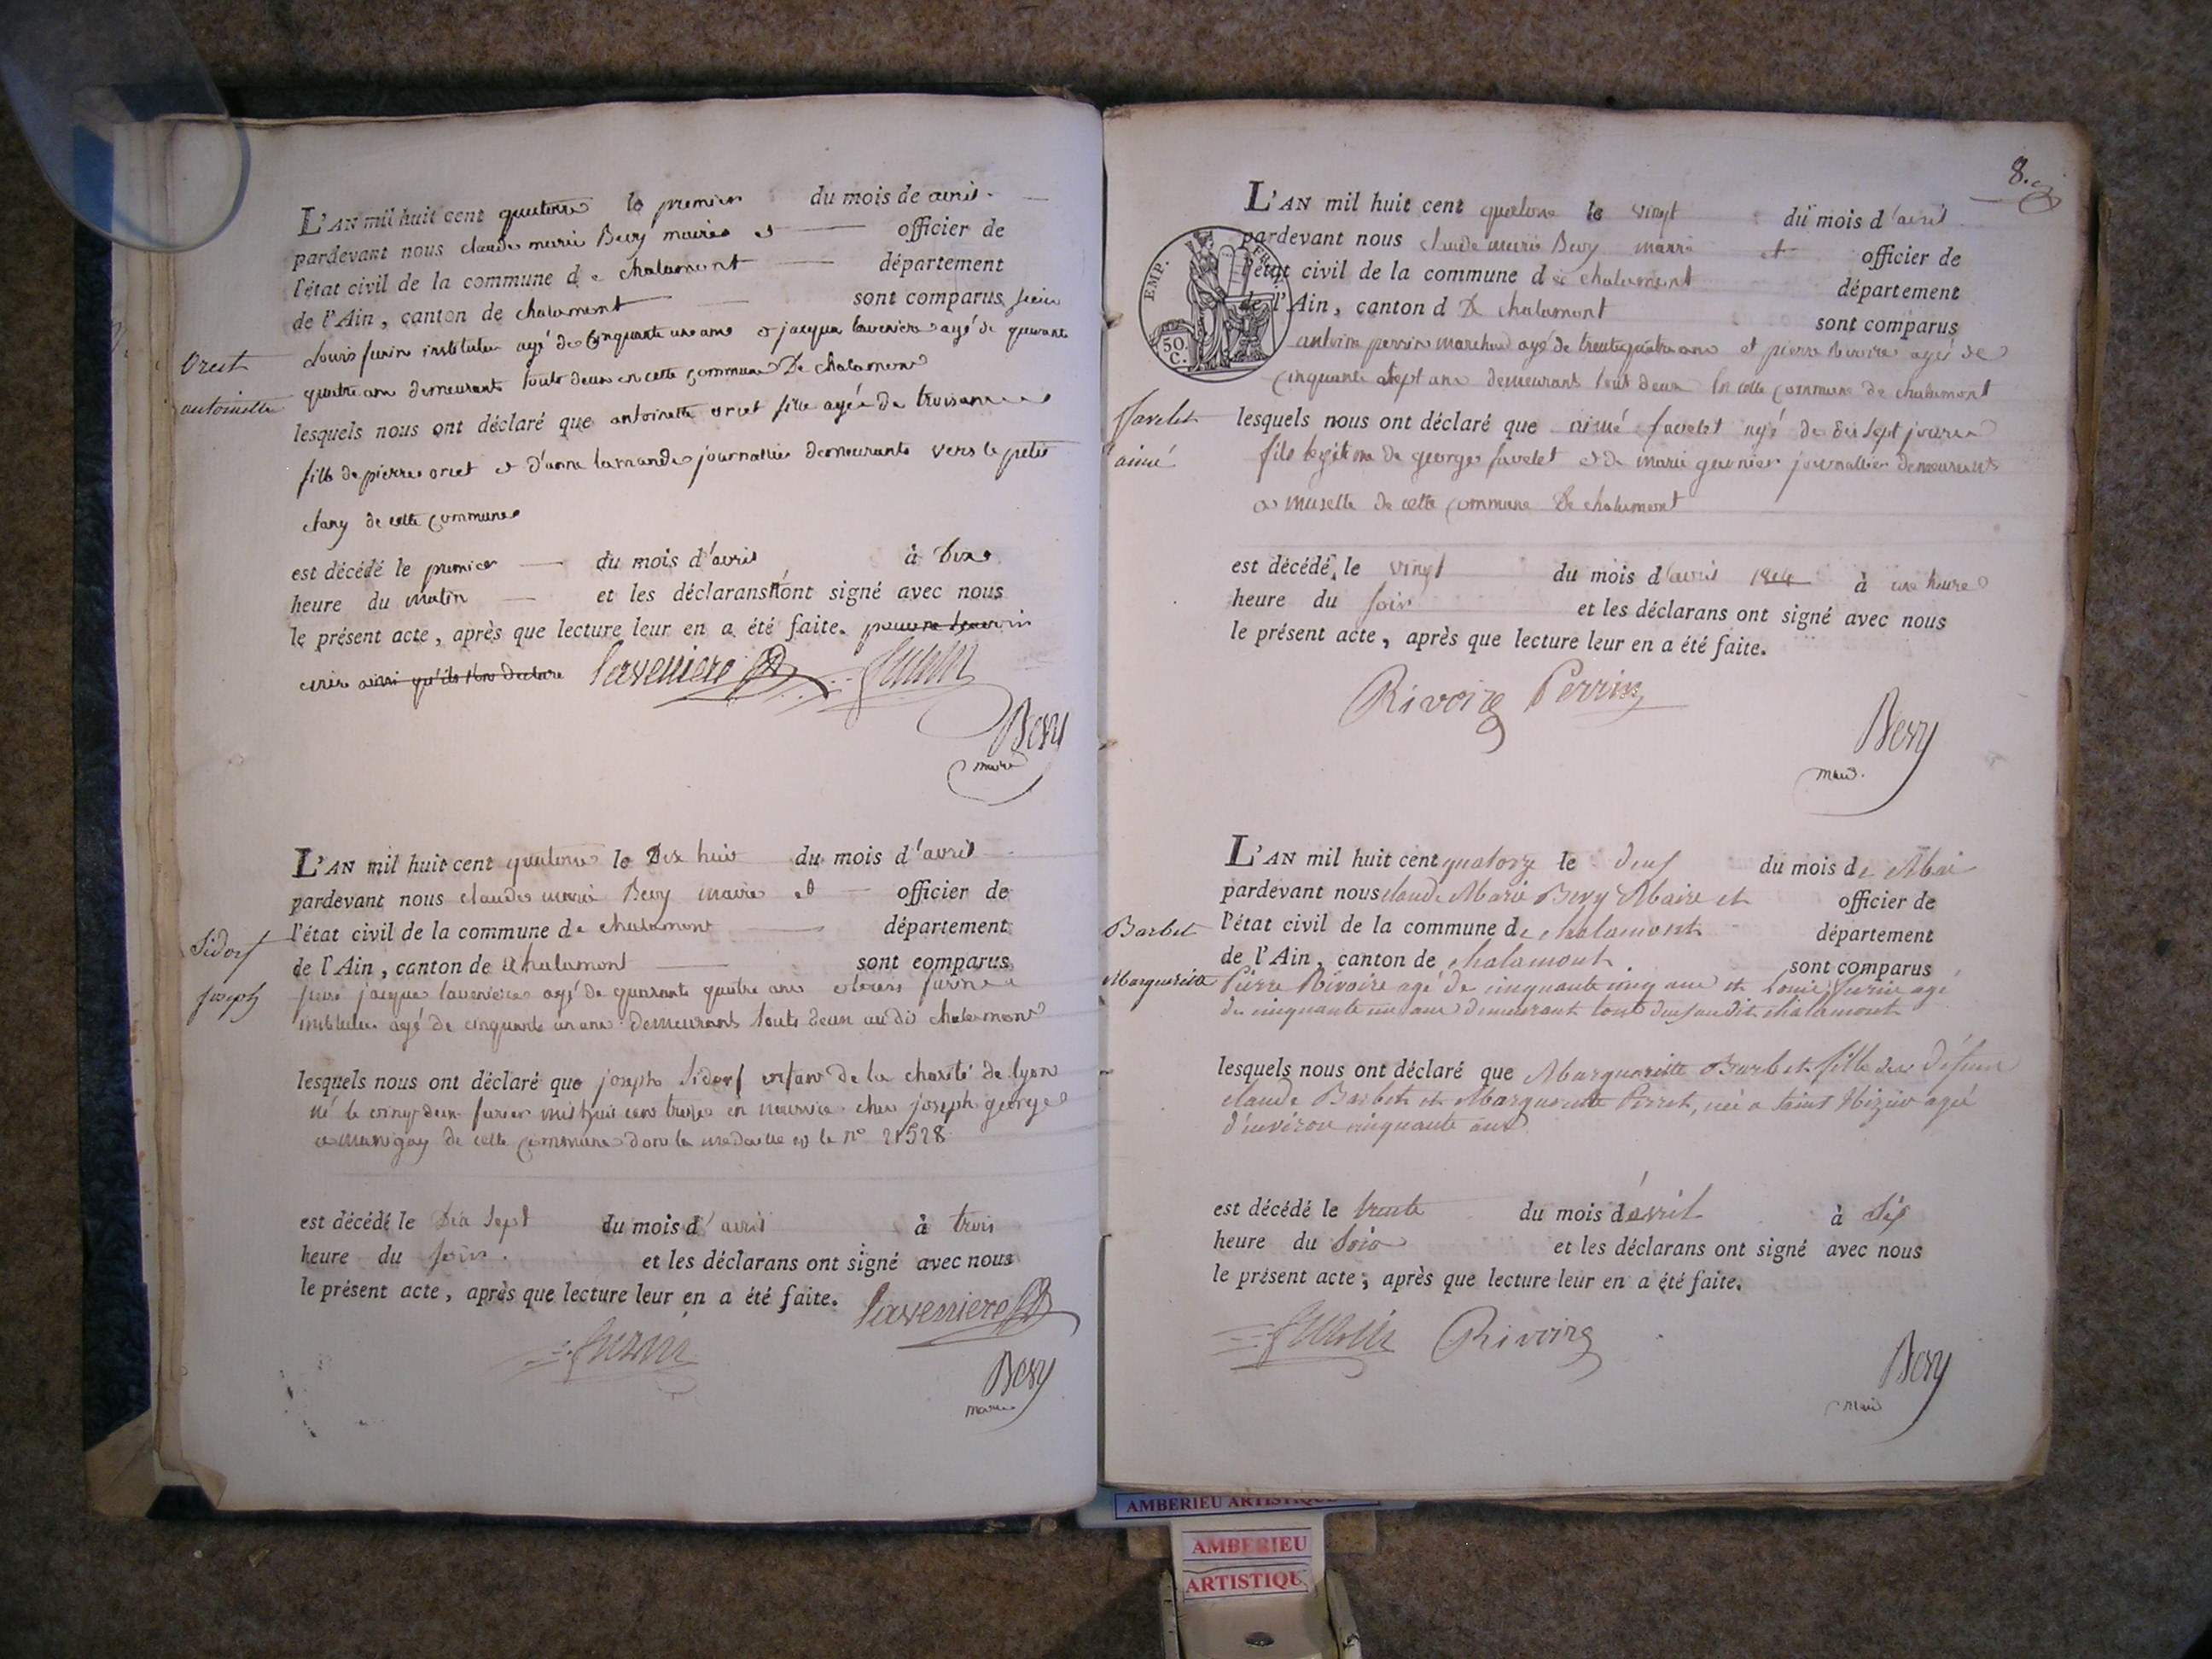 L'AN mil huit cent quatorze le premier du mois de avril
pardevant nous claude marie Bevy maire et officier de
l'état civil de la commune de chalamont département
de l'Ain, canton de chalamont sont comparus
Louis instituteur agé de Cinquante un ans et jacques laveniere agé de quarante
quatre ans demeurants touts deux en cette commune De chalamont
orcet
antoinette
lesquels nous ont déclaré que antoinette orcet fille agée de trois ans
fille de pierre orcet et d'anne lamande journalier demeurants vers le petit
de cette commune
est décédé le premier du mois d'avril à Dix
heure du matin et les déclarans n'ont signé avec nous
le présent acte, après que lecture leur en a été faite.
ainsi qu'ils l'ont declare Laveniere
Bevy
maire
L'AN mil huit cent quatorze le Dix huit du mois d'avril
pardevant nous claude marie Bevy maire et officier de
l'état civil de la commune de chalamont département
Sidorf
joseph
de l'Ain, canton de chalamont sont comparus
jacques laveniere agé de quarante quatre ans et louis
instituteur agé de cinquante un ans demeurants touts deux audit chalamont
lesquels nous ont déclaré que joseph Sidorf enfant de la charité de lyon
né le vingt deux fevrier mil huit cent treize en nourrice chez joseph george
a de cette commune dont la medaille est le n° 21528
est décédé le Dix sept du mois d'avril à trois
heure du soir. et les déclarans ont signé avec nous
le présent acte, après que lecture leur en a été faite. Laveniere
Bevy
maire
8.
L'AN mil huit cent quatorze le vingt du mois d'avril
pardevant nous claude marie Bevy maire et officier de
l'état civil de la commune de chalamont département
de l'Ain, canton d De chalamont sont comparus
EMP. FRAN.
50. C.
antoine perrin marchand agé de trente quatre ans et pierre Rivoire agé de
cinquante sept ans demeurants touts deux en cette commune de chalamont
favelet
aimé
lesquels nous ont déclaré que aimé favelet agé de dix sept jours
fils legitime de george favelet et de marie garnier journallier demeurants
a musette de cette commune De chalamont
est décédé le vingt du mois d'avril 1814 à une heure
heure du soir et les déclarans ont signé avec nous
le présent acte, après que lecture leur en a été faite.
Rivoire Perrin
Bevy
maire.
L'AN mil huit cent quatorze le deux du mois de Mai
pardevant nous claude Marie Bevy Maire et officier de
Barbet
Marguerite
l'état civil de la commune de chalamont département
de l'Ain, canton de chalamont sont comparus
Pierre Rivoire agé de cinquante cinq ans et Louis agé
de cinquante un ans demeurant tous deux audit chalamont
lesquels nous ont déclaré que Marguerite Barbet fille de défunt
claude Barbet et Marguerite Perret, née a Saint Nizier agée
d'environ cinquante ans
est décédé le trente du mois d'avril à six
heure du Soir et les déclarans ont signé avec nous
le présent acte, après que lecture leur en a été faite.
Rivoire
Bevy
maire
AMBERIEU ARTISTIQUE
AMBERIEU
ARTISTIQU